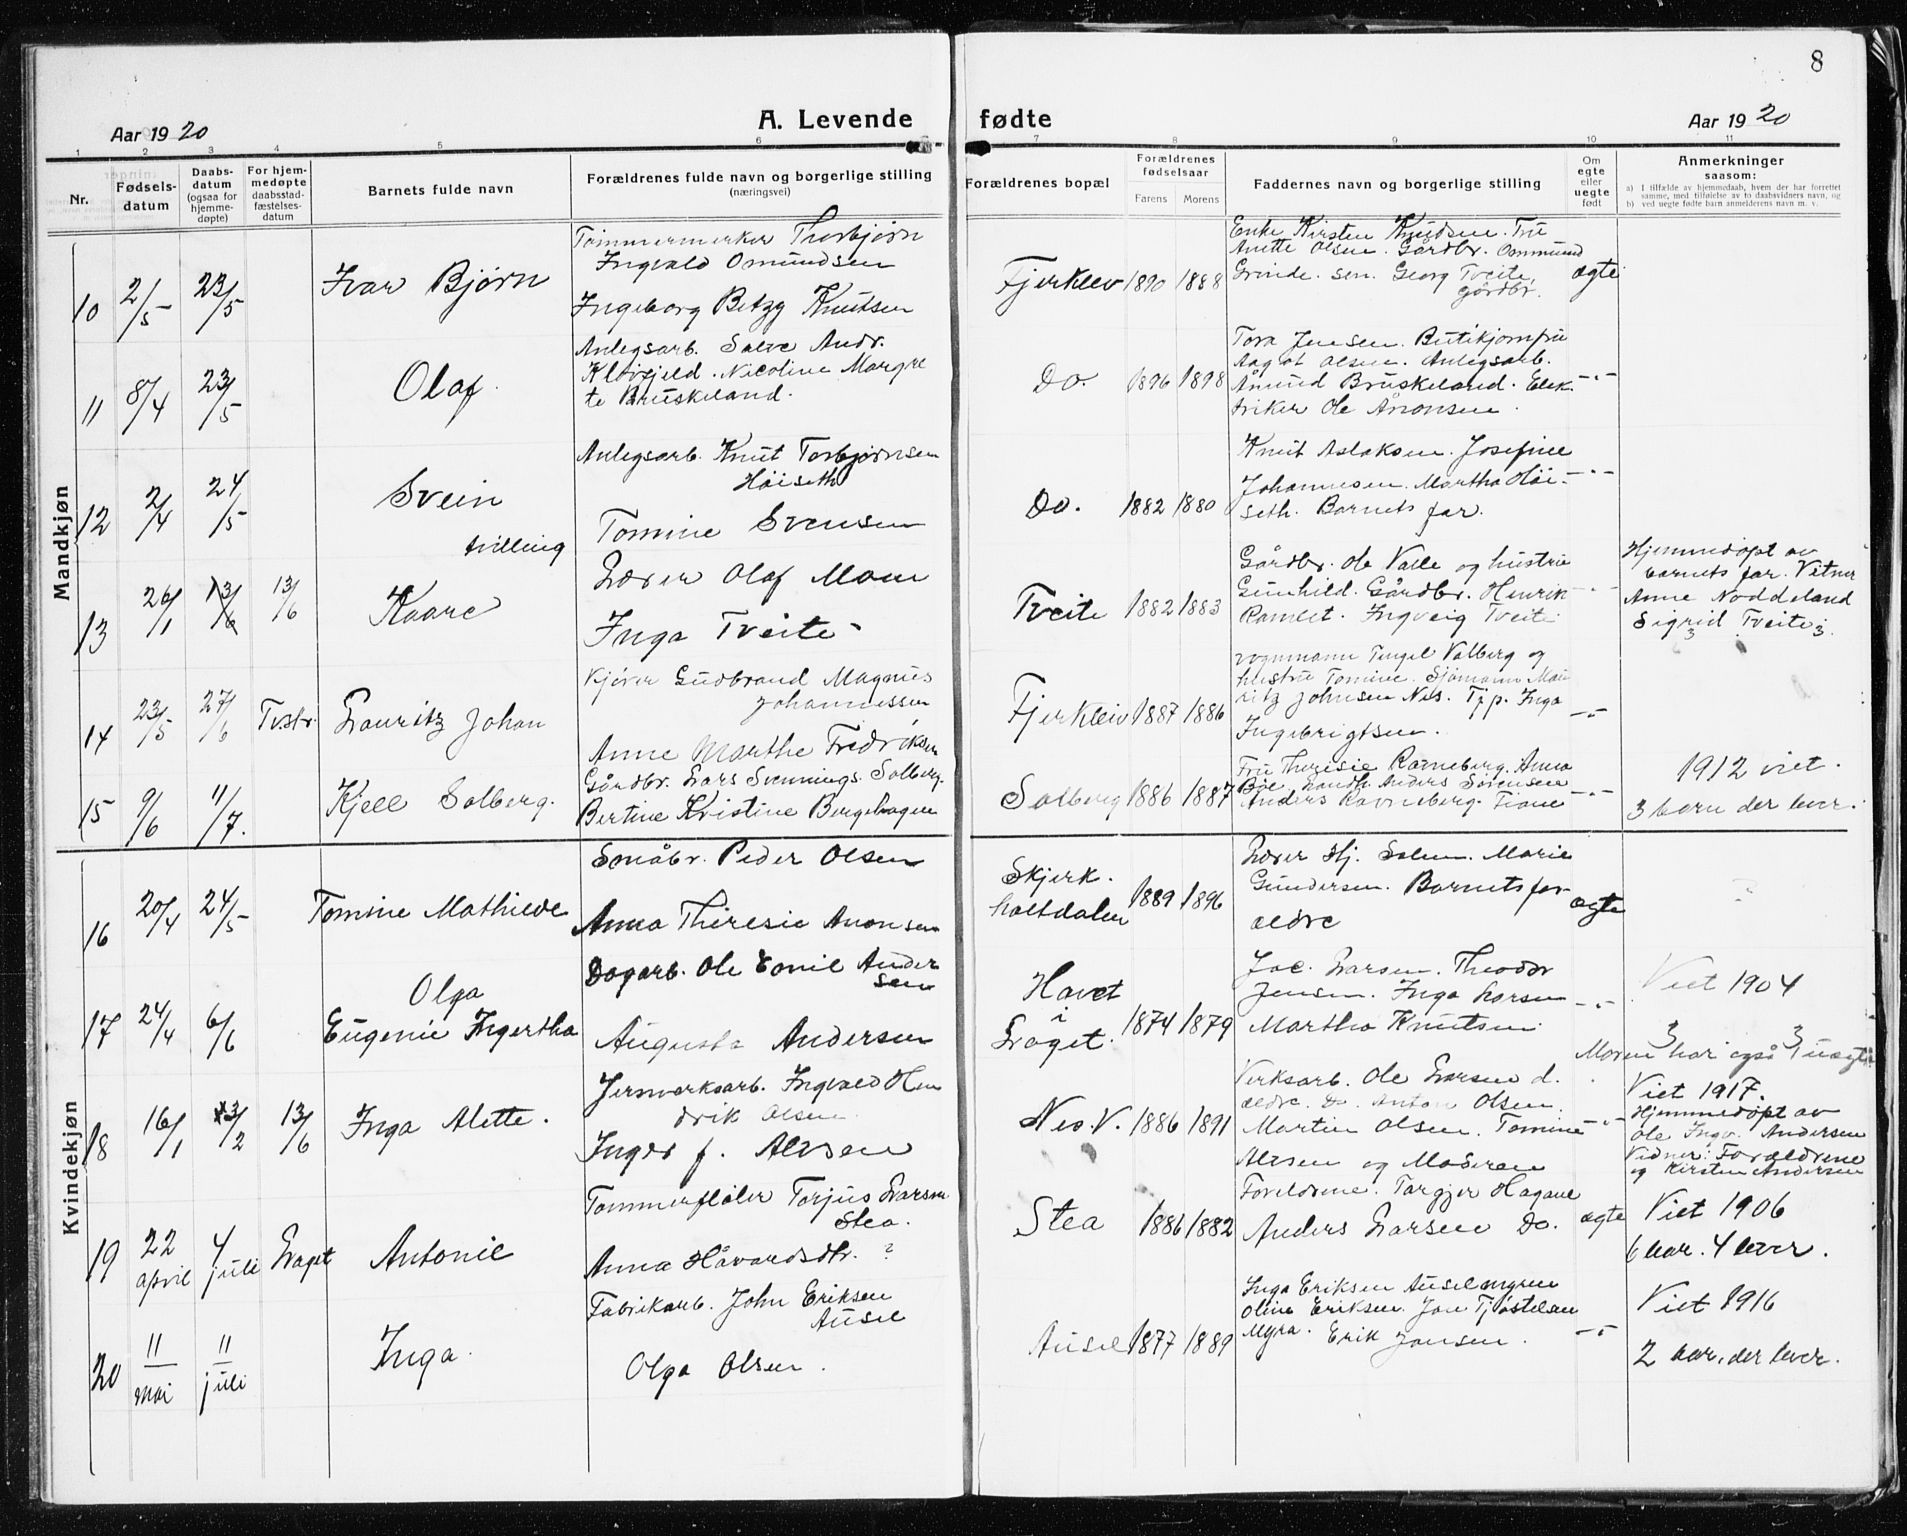 8
Aar 1920
A. Levende fødte
Aar 1920
1 2 3 4 5 6 7 8 9 10 11
Nr.
Fødsels-
datum
Daabs-
datum
(ogsaa for
hjemme-
døpte)
For hjem-
medøpte
daabsstad-
fæstelses-
datum
Barnets fulde navn
Forældrenes fulde navn og borgerlige stilling
(næringsvei)
Forældrenes bopæl
Forældrenes
fødselsaar
Farens Morens
Faddernes navn og borgerlige stilling
Om
egte
eller
uegte
født
Anmerkninger
saasom:
a) I tilfælde av hjemmedaab, hvem der har forrettet
samme, med tilføielse av to daabsvidners navn, og
b) ved uegte fødte barn anmelderens navn m. v.
Mandkjøn
10 2/5 23/5 Ivar Bjørn
Tømmermerker Thorbjørn
Ingvald Omundsen
Ingeborg Betzy Knutsen
Fjerkleiv 1890 1888
Enke Kirsten Knudsen. Fru
Anette Olsen. Gårdbr. Ommund
Grinde. sen. Georg Tveite
Gårdbr.
ægte
11 8/4 23/5 Olaf.
Anlegsarb. Salve Andr.
Kløvfjeld. Nicoline Margre
te Bruskeland.
Do. 1896 1898
Tora Jensen. Butikjomfru
Aagot Olsen. Anlegsarb.
Åmund Bruskeland. Elek-
triker Ole Ånonsen.
-"-
12 2/4 24/5 Svein
tvilling
Anlegsarb. Knut Torbjørnsen
Höiseth
Tomine Svensen
Do. 1882 1880
Knut Aslaksen. Josefine
Johannesen. Martha Höi-
seth. Barnets far.
-"-
13 26/1 13/6 13/6 Kaare
Lærer Olaf Moen
Inga Tveite
Tveite 1882 1883
Gårdbr. Ole Valle og hustru
Gunhild. Gårdbr. Henrik
Ramlet. Ingveig Tveite
-"-
Hjemmedøpt av
barnets far. Vitner
Anne Noddeland
Sigrid Tveite
14 23/5 27/6 Lauritz Johan
Kjører Gudbrand Magnus
Johannessen
Anne Marthe Fredriksen
Fjerkleiv 1887 1886
Vognmann Tengel Valberg og
hustru Tomine. Sjömann Mau
ritz Johnsen Nes. Tjp. Inga
Ingebrigtsen.
-"-
15 9/6 11/7. Kjell Solberg.
Gårdbr. Lars Svennings. Solberg.
Bertine Kristine Bergehagen
Solberg 1886 1887
Fru Theresie Ravneberg. Anna
Bøe. Landh. Anders Sörensen
Anders Ravneberg. Tiane
-"-
1912 viet.
3 barn der lever.
Kvindekjøn
16 20/4 24/5 Tomine Mathilde
Småbr. Peder Olsen
Anna Theresie Anonsen
Skjerk.
holtdalen 1889 1896
Lærer Hj. Salen. Marie
Gundersen. Barnets for-
ældre
ægte
17 24/4 6/6 Olga
Eugenie Ingertha
Dagarb. Ole Emil Ander
sen
Augusta Andersen
Havet
i
Laget. 1874 1879
Jac. Larsen. Theodor
Jensen. Inga Larsen
Martha Knutsen.
-"-
Viet 1904
3 3
Moren har også 1 uægte
18 16/1 13/6 Inga Alette.
Jernverksarb. Ingvald Hen
drik Olsen
Inger f. Alvsen
Nes V. 1886 1891
Verksarb. Ole Larsen d.
ældre. Do. Anton Olsen.
Martin Olsen. Tomine
Alvsen og Moderen
-"-
Viet 1917.
Hjemmedøpt av
Ole Ingv. Andersen
Vidner: Forældrene
og Kirsten Andersen
19 22 april 4 juli Laget Antonie
Tømmerfløter Torjus Larsen
Stea.
Anna Håvardsdtr. ?
Stea 1886 1882
Foreldrene. Targjer Hagane
Anders Larsen Do.
ægte
Viet 1906
6 bar. 4 lever.
20 11 mai 11 juli Inga.
Fabrikarb. John Eriksen
Ausel
Olga Olsen.
Ausel 1877 1889
Inga Eriksen Auselmyren
Oline Eriksen. Jon Tjøstelsen
Myra. Erik Jonsen.
-"-
Viet 1916
2 bar. der lever.